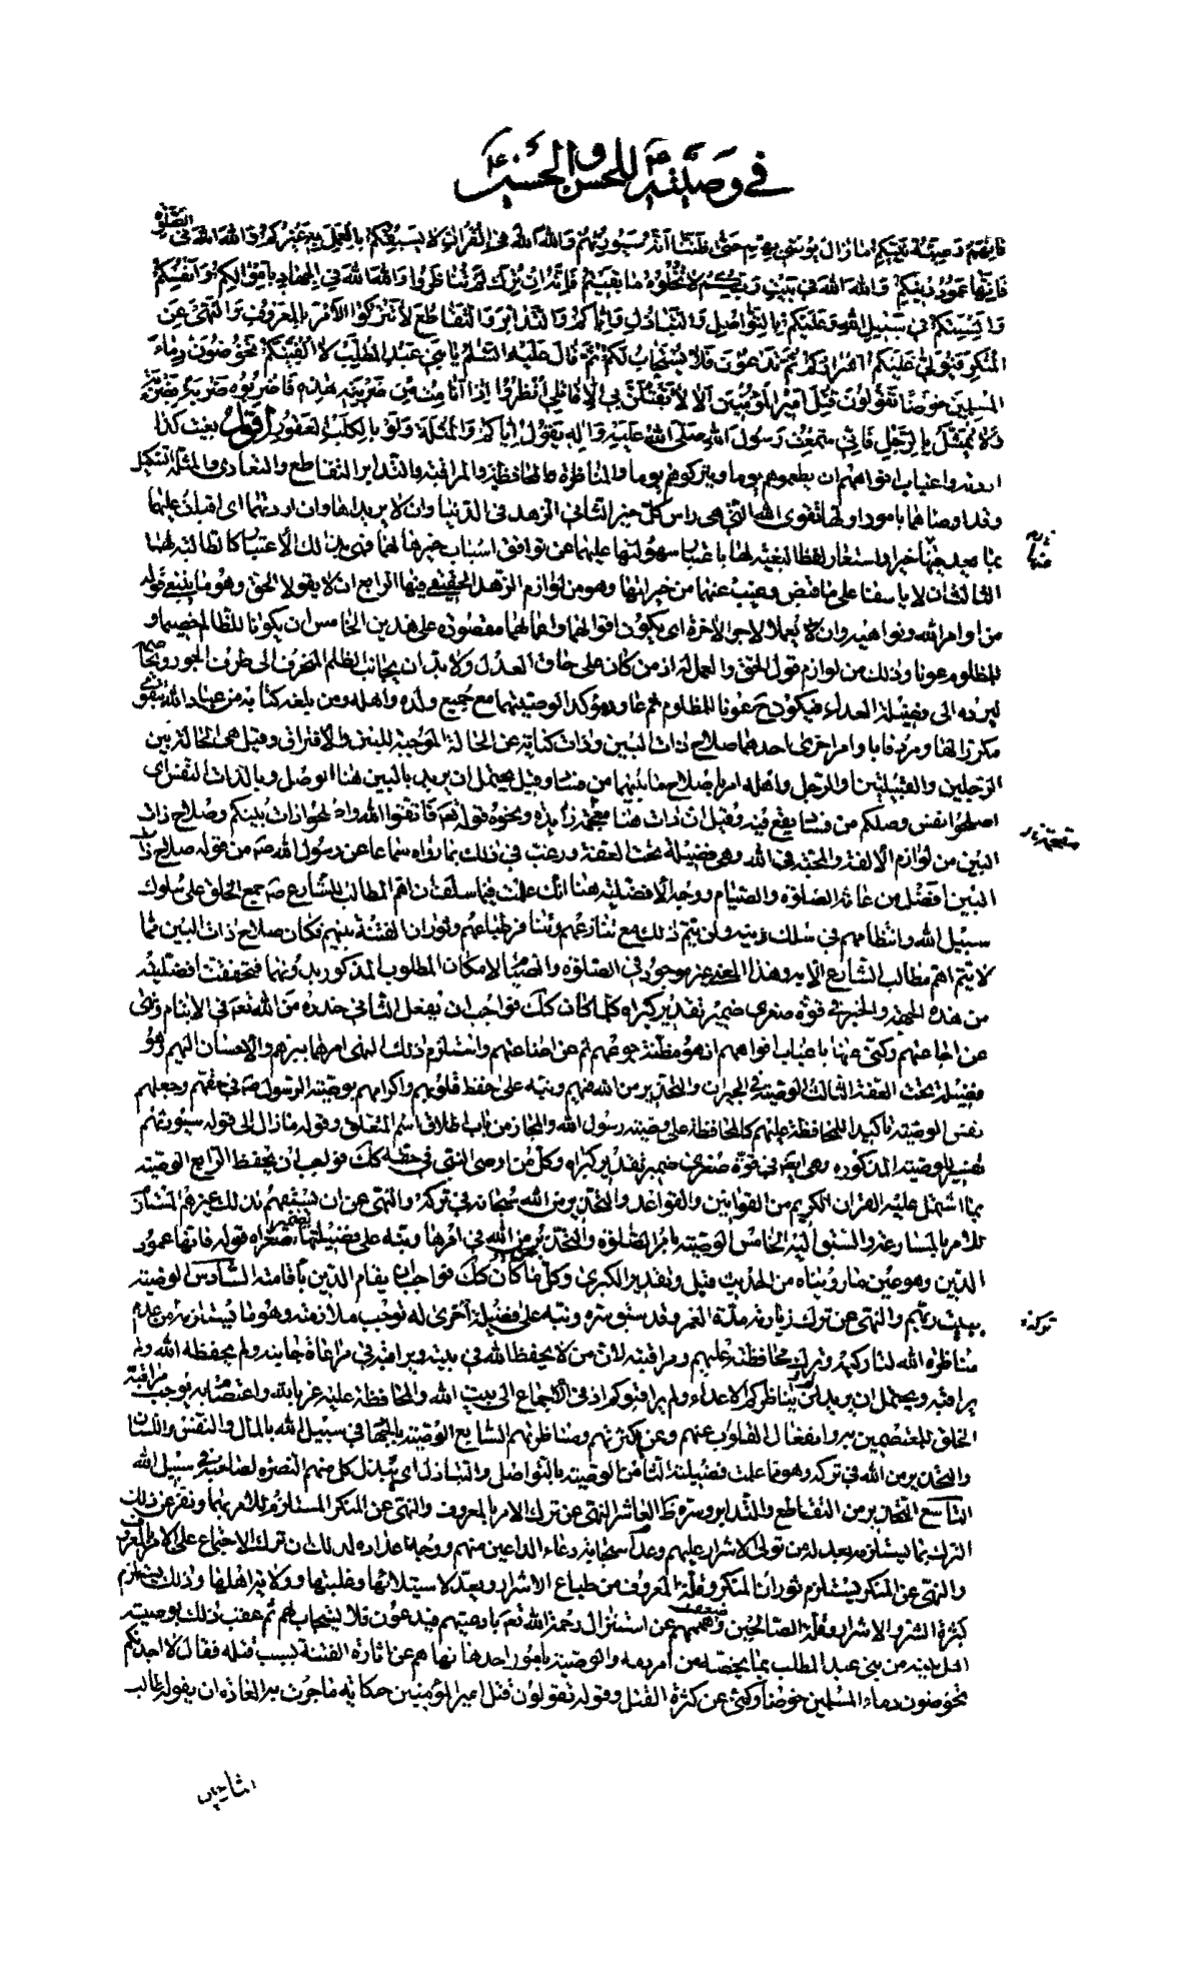 في وصيته للحسن والحسين
فإنهم وصية نبيكم ما زال يوصي بهم حتى ظننا أنه سيورثهم والله الله في القرآن لا يسبقكم بالعمل به غيركم والله الله في الصلوة
فإنها عمود دينكم والله الله في بيت ربكم لا تخلوه ما بقيتم فإنه إن ترك لم تناظروا والله الله في الجهاد بأموالكم وأنفسكم
وألسنتكم في سبيل الله وعليكم بالتواصل والتباذل وإياكم والتدابر والتقاطع لا تتركوا الأمر بالمعروف والنهي عن
المنكر فيولى عليكم أشراركم ثم تدعون فلا يستجاب لكم ثم قال عليه السلم يا بني عبد المطلب لا ألفينكم تخوضون دماء
المسلمين خوضا تقولون قتل أمير المؤمنين ألا لا تقتلن بي إلا قاتلي أنظروا إذا أنا مت من ضربته هذه فاضربوه ضربة بضربة
ولا يمثل بالرجل فإني سمعت رسول الله صلى الله عليه وآله يقول إياكم والمثلة ولو بالكلب العقور أقول بغيت كذا
اردته واغباب افواههم ان يطعموهم يوما ويتركوهم يوما والمناظرة المحافظة والمراقبة والتدابر التقاطع والتعادى والمثلة التنكيل
وقد اوصاهما بامور اولها تقوى الله التى هى راس كل خير الثانى الزهد فى الدنيا وان لا يريداها وان ارادتهما اى اقبلت عليهما
الثالث ان لا ياسفا على ما قبض وغيب عنهما من خيراتها وهو من لوازم الزهد الحقيقى فيها الرابع ان لا يقولا الحق وهو ما ينبغى قوله
من اوامر الله ونواهيه وان لا يعملا الا لاجر الاخرة اى يكون اقوالهما وافعالهما مقصورة على هذين الخامس ان يكونا للظالم خصما و
للمظلوم عونا وذلك من لوازم قول الحق والعمل له اذ من كان على حاق العدل ولا بد ان يجانب الظلم المنحرف الى طرف الجور
ليرده الى فضيلة العدل فيكون ح عونا للمظلوم ثم عاود مؤكدا لوصيتهما مع جميع ولده واهله ومن بلغه كتابه من عباد الله بتقوى
الرجلين والقبيلتين والرجل واهله امر باصلاح ما بينهما من فساد وقيل يحتمل ان يريد بالبين هنا الوصل وبالذات النفس اى
اصلحوا نفس وصلكم من فساد يقع فيه وقيل ان ذات هنا مقحمة زايدة ونحوه قوله تعم فاتقوا الله واصلحوا ذات بينكم وصلاح ذات
البين من لوازم الالفة والمحبة فى الله وهى فضيلة تحت العفة ورغب فى ذلك بما رواه سماعا عن رسول الله صه من قوله صلاح ذات
البين افضل من عامة الصلوة والصيام ووجه الافضلية هنا انك علمت فيما سلف ان اهم المطالب للشارع صه جمع الخلق على سلوك
سبيل الله وانتظامهم فى سلك دينه ولن يتم ذلك مع تنازعهم وتنافر طباعهم وثوران الفتنة بينهم فكان صلاح ذات البين مما
لا يتم اهم مطالب الشارع الا به وهذا المعنى غير موجود فى الصلوة والصيام لامكان المطلوب المذكور بدونهما فتحققت افضليته
من هذه الجهة والخبر فى قوة صغرى ضمير تقدير كبراه كلما كان كك فواجب ان يفعل الثانى حذره من الله تعم فى الايتام ونهى
عن اجاعتهم وكنى عنها باغباب افواههم اذ هو مظنة جوعهم ثم عن اضاعتهم واستلزم ذلك النهى امرهما ببرهم والاحسان اليهم وهو
فضيلة تحت العفة الثالث الوصية فى الجيران والتحذير من الله فيهم ونبه على حفظ قلوبهم واكرامهم بوصية الرسول صه فى حقهم وجعلهم
نفس الوصية تاكيدا للمحافظة عليهم كالمحافظة على وصية رسول الله والمجاز من باب اطلاق اسم المتعلق وقوله ما زال الى قوله سيورثهم
تفسير للوصية المذكورة وهى ايضا فى قوة صغرى ضمير تقدير كبراه وكل من اوصى النبى فى حقه كك فواجب ان يحفظ الرابع الوصية
بما اشتمل عليه القران الكريم من القوانين والقواعد والتحذير من الله سبحانه فى تركه والنهى عن ان يسبقهم بذلك غيرهم المستلزم
للامر بالمسارعة والسبق اليه الخامس الوصية بامر الصلوة والتحذير من الله فى امرها ونبه على فضيلتها بضمير صغراه قوله فانها عمود
الدين وهو عين ما رويناه من الحديث قبل وتقدير الكبرى وكل ما كان كك فواجب ان يقام الدين باقامته السادس الوصية
ببيت ربهم والنهى عن ترك زيارته مدة العمر وقد سبق سره ونبه على فضيلة اخرى له توجب ملازمته وهو ما يستلزمه من عدم تركه
مناظرة الله لتاركيه وترك محافظته عليهم ومراقبته لان من لا يحفظ الله فى بيته ويراقبه فى مراعاة جانبه ولم يحفظه الله ولم
يراقبه ويحتمل ان يريد لم يناظركم الاعداء ولم يراقبوكم اذ فى الاجتماع الى بيت الله والمحافظة عليه عز بالله واعتصام به يوجب مراقبة
الخلق للمعتصمين به وانفعال القلوب عنهم وعن كثرتهم ومناظرتهم السابع الوصية بالجهاد فى سبيل الله بالمال والنفس واللسان
والتحذير من الله فى تركه وهو ما علمت فضيلته الثامن الوصية بالتواصل والتباذل اى يبذل كل منهم النصرة لصاحبه فى سبيل الله
التاسع التحذير من التقاطع والتدابر وسره ظ العاشر النهى عن ترك الامر بالمعروف والنهى عن المنكر المستلزم للامر بهما ونفر عن ذلك
الترك بما يستلزمه بعد له من تولى الاشرار عليهم وعدم استجابة دعاء الداعين منهم ووجه اعداده لذلك ان ترك الاجتماع على الامر بالمعروف
والنهى عن المنكر يستلزم ثوران المنكر وقلة المعروف من طباع الاشرار ويعد لاستيلائها وغلبتها وولاية اهلها وذلك يستلزم
كثرة الشر والاشرار وقلة الصالحين وضعف هممهم عن استنزال رحمة الله تعم بادعيتهم فيدعون فلا يستجاب لهم ثم عقب ذلك بوصيته
اهل بيته من بنى عبد المطلب بما يخصه من امر دمه والوصية بامور احدها نهاهم عن اثارة الفتنة بسبب قتله فقال لا اجدنكم
تخوضون دماء المسلمين خوضا وكنى عن كثرة القتل وقوله تقولون قتل امير المؤمنين حكاية ما جرت به العادة ان يقوله طالب